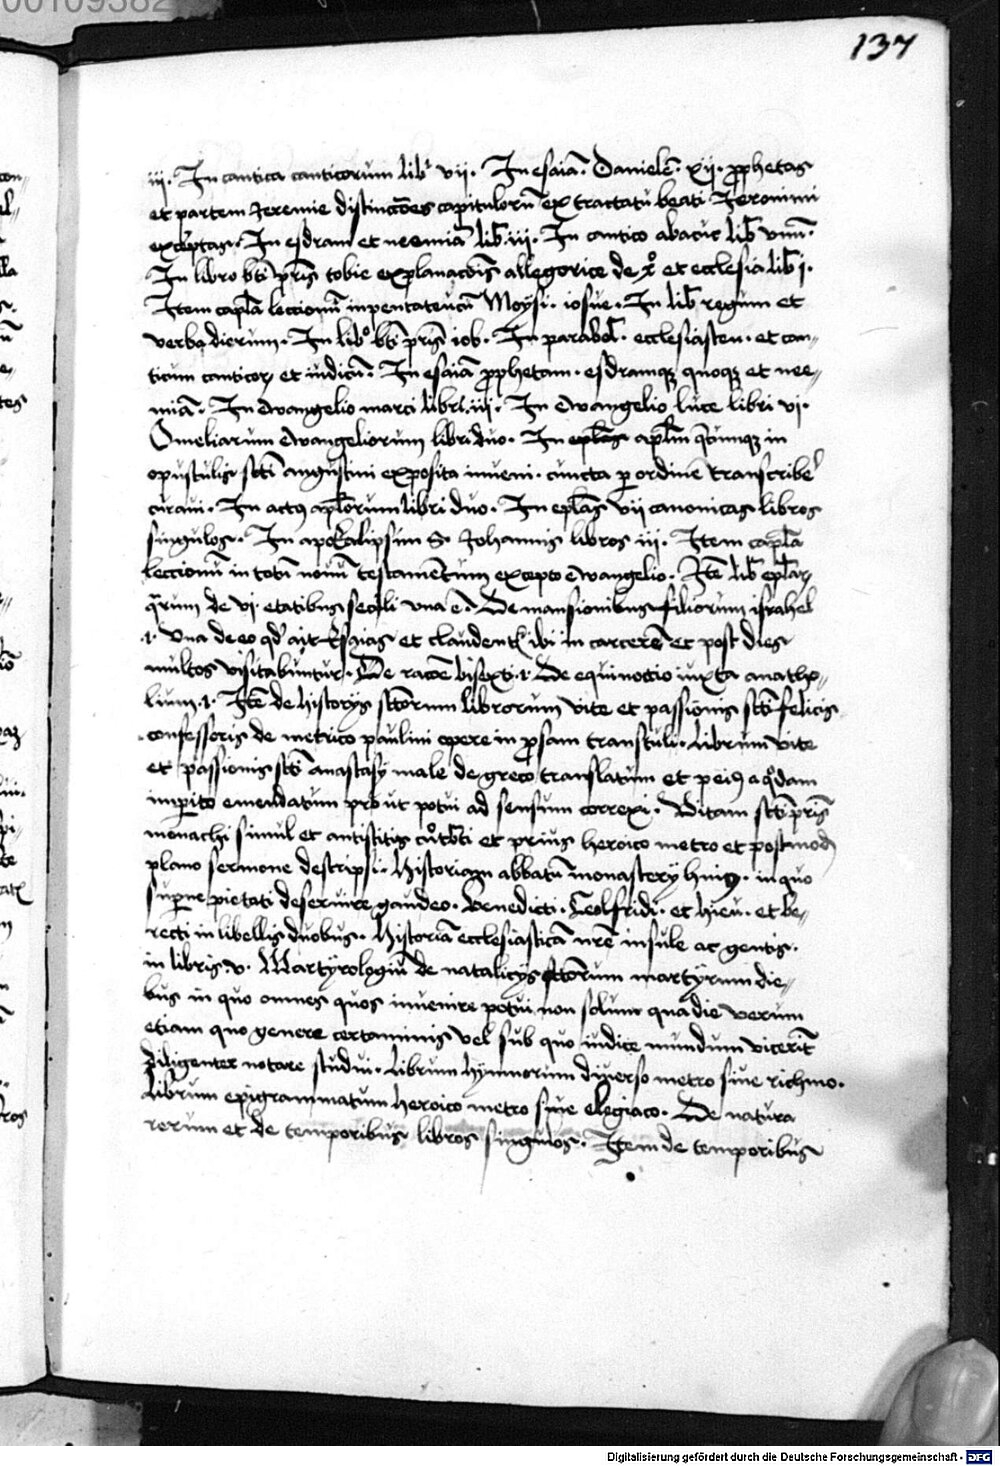 00109382
137
iii. In cantica canticorum lib' vii. In esaiā. Danielē. xij. ꝓphetas
et partem Jeremie distincc̄oes capitulorū ex tractatū beati Jeronimi
exceptas. In esdram et neemiā lib̄. iij. In cantico abacuc lib̄ vnū.
In libro bt̄i pr̄is tobie explanac̄ois allegorice de xp̄o et ecclesia lib̄ j.
Item capl̄a leccionū in pentateucū Moysi. iosue. In lib̄ regum et
verba dierum. In lib° bt̄i pr̄is iob. In parabol̄. ecclesiasten. et can-
ticum canticoꝝ et iudicū. In esaiā ꝓphetam. esdramqꝫ quoqꝫ et nee-
miā. In Ewangelio marci libri. iij. In Ewangelio luce libri vi.
Omeliarum Ewangeliorum libri duo. In epl̄as apl̄m q̄cumqꝫ in
opusculis sc̄ti augustini exposita inueni. cuncta ꝑ ordinē transcribē
curaui. In actꝰ apl̄orum libri duo. In epl̄as vii canonicas libros
singulos. In apokalipsim S. Johannis libros iii. Item capl̄a
leccionū in totū nouū testamentum excepto Ewangelio. Itē lib̄ epl̄aꝝ
q̄rum de vi. etatibus sec̄li vna ē. De mansionibus filiorum israhel
.1. Vna de eo qd̄ ait Esaias et claudentr̄ ibi in carcerē et post dies
multos visitabuntur. De rac̄oe bisexti .1. De equinoctio iuxta anatho-
lium .1. Itē de historijs sc̄torum librorum vite et passionis sc̄ti felicis
confessoris de metrico paulini opere in ꝓsam transtuli. Librum vite
et passionis sc̄ti anastasij male de greco translatum et peiꝰ a q°dam
imperito emendatum prout potui ad sensum correxi. Vitam sc̄ti pr̄is
monachi simul et antistitis cut̄b̄ti et prius heroico metro et postmodū
plano sermone descripsi. Historiam abbatū monasterij huiꝰ. in quo
suꝑne pietati deseruire gaudeo. Benedicti. Ceolfridi. et hieu. et be-
recti in libellis duobus. Historiā ecclesiasticā nr̄e insule ac gentis.
in libris. v. Martyrologiū de natalicijs sc̄torum martyrum die-
bus in quo omnes quos inuenire potui non solum qua die verum
etiam quo genere certaminis vel sub quo iudice mundum vicerīt
diligenter notare studui. Librum hymnorum diuerso metro siue richmo.
Librum epigrammatum heroico metro siue elegiaco. De natura
rerum et de temporibus libros singulos. Item de temporibus
Digitalisierung gefördert durch die Deutsche Forschungsgemeinschaft - DFG